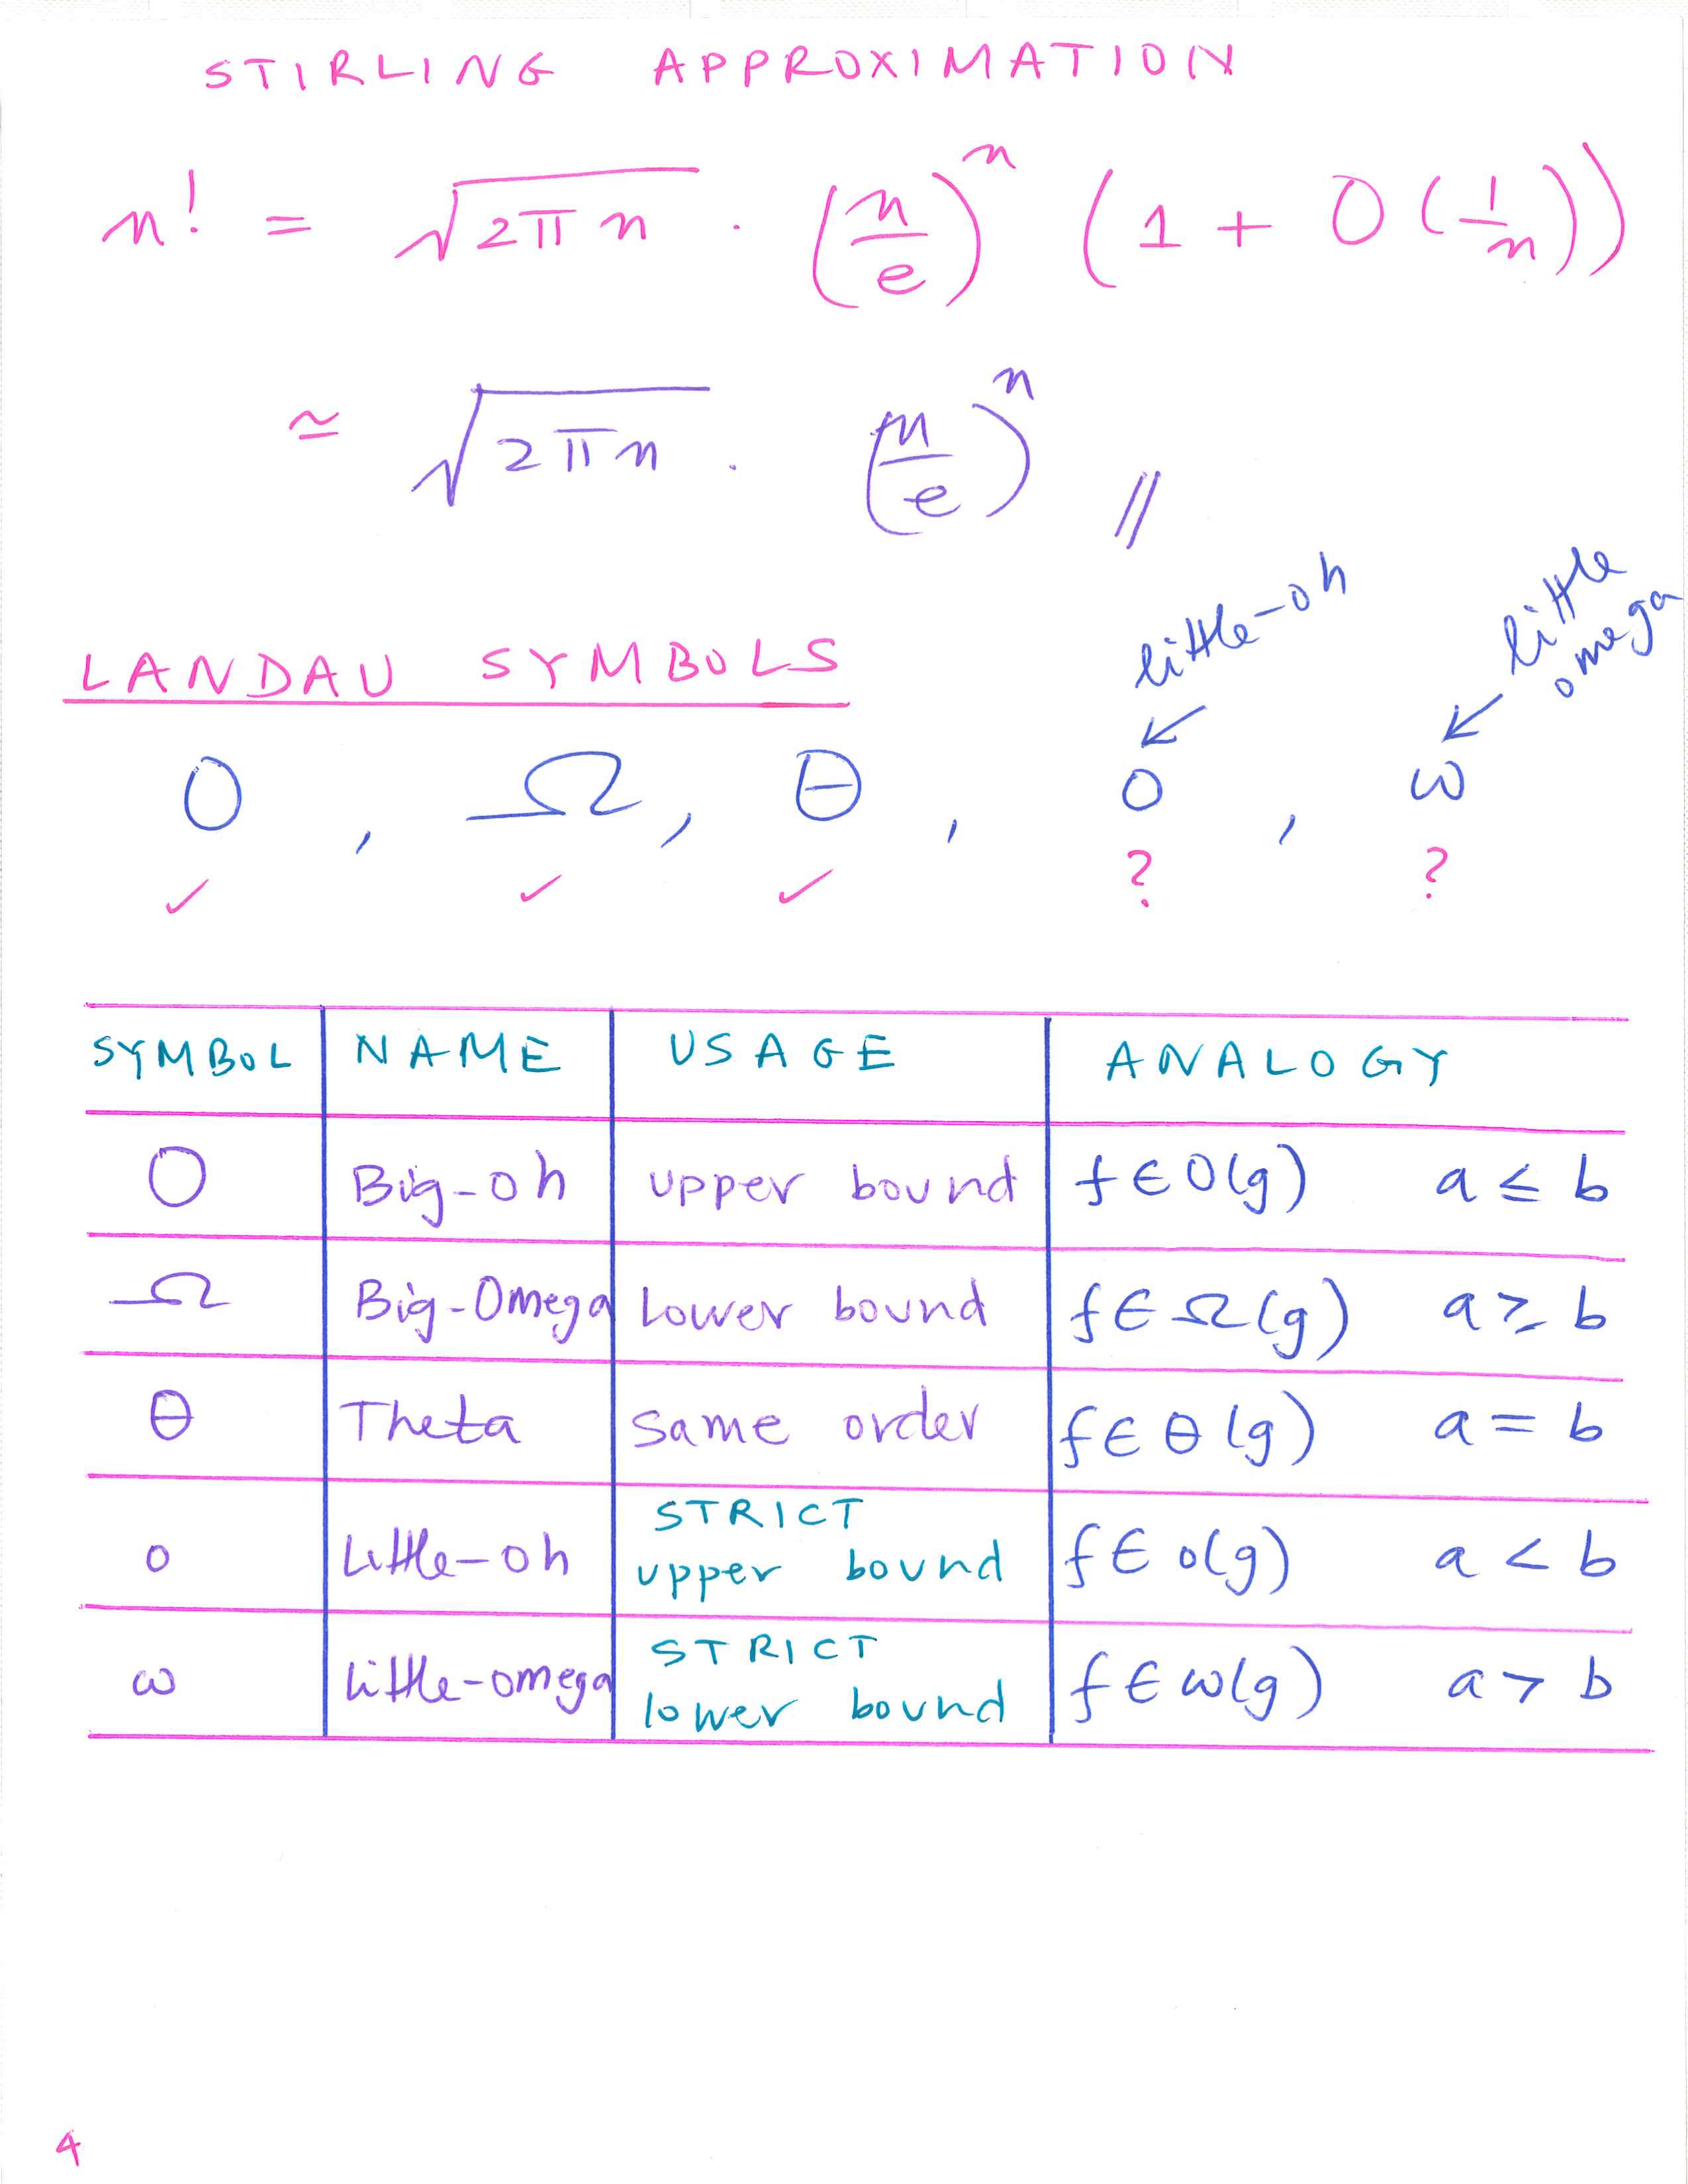 STIRLING APPROXIMATION
n! = √(2πn) · (n/e)^n (1 + O(1/n))
≃ √(2πn) · (n/e)^n //
little-oh
little omega
LANDAU SYMBOLS
O , Ω , θ , o , ω
✓ ✓ ✓ ? ?
SYMBOL NAME USAGE ANALOGY
O Big-oh upper bound f ∈ O(g) a ≤ b
Ω Big-Omega Lower bound f ∈ Ω(g) a ≥ b
θ Theta Same order f ∈ θ(g) a = b
o Little-oh STRICT upper bound f ∈ o(g) a < b
ω little-omega STRICT lower bound f ∈ ω(g) a > b
4